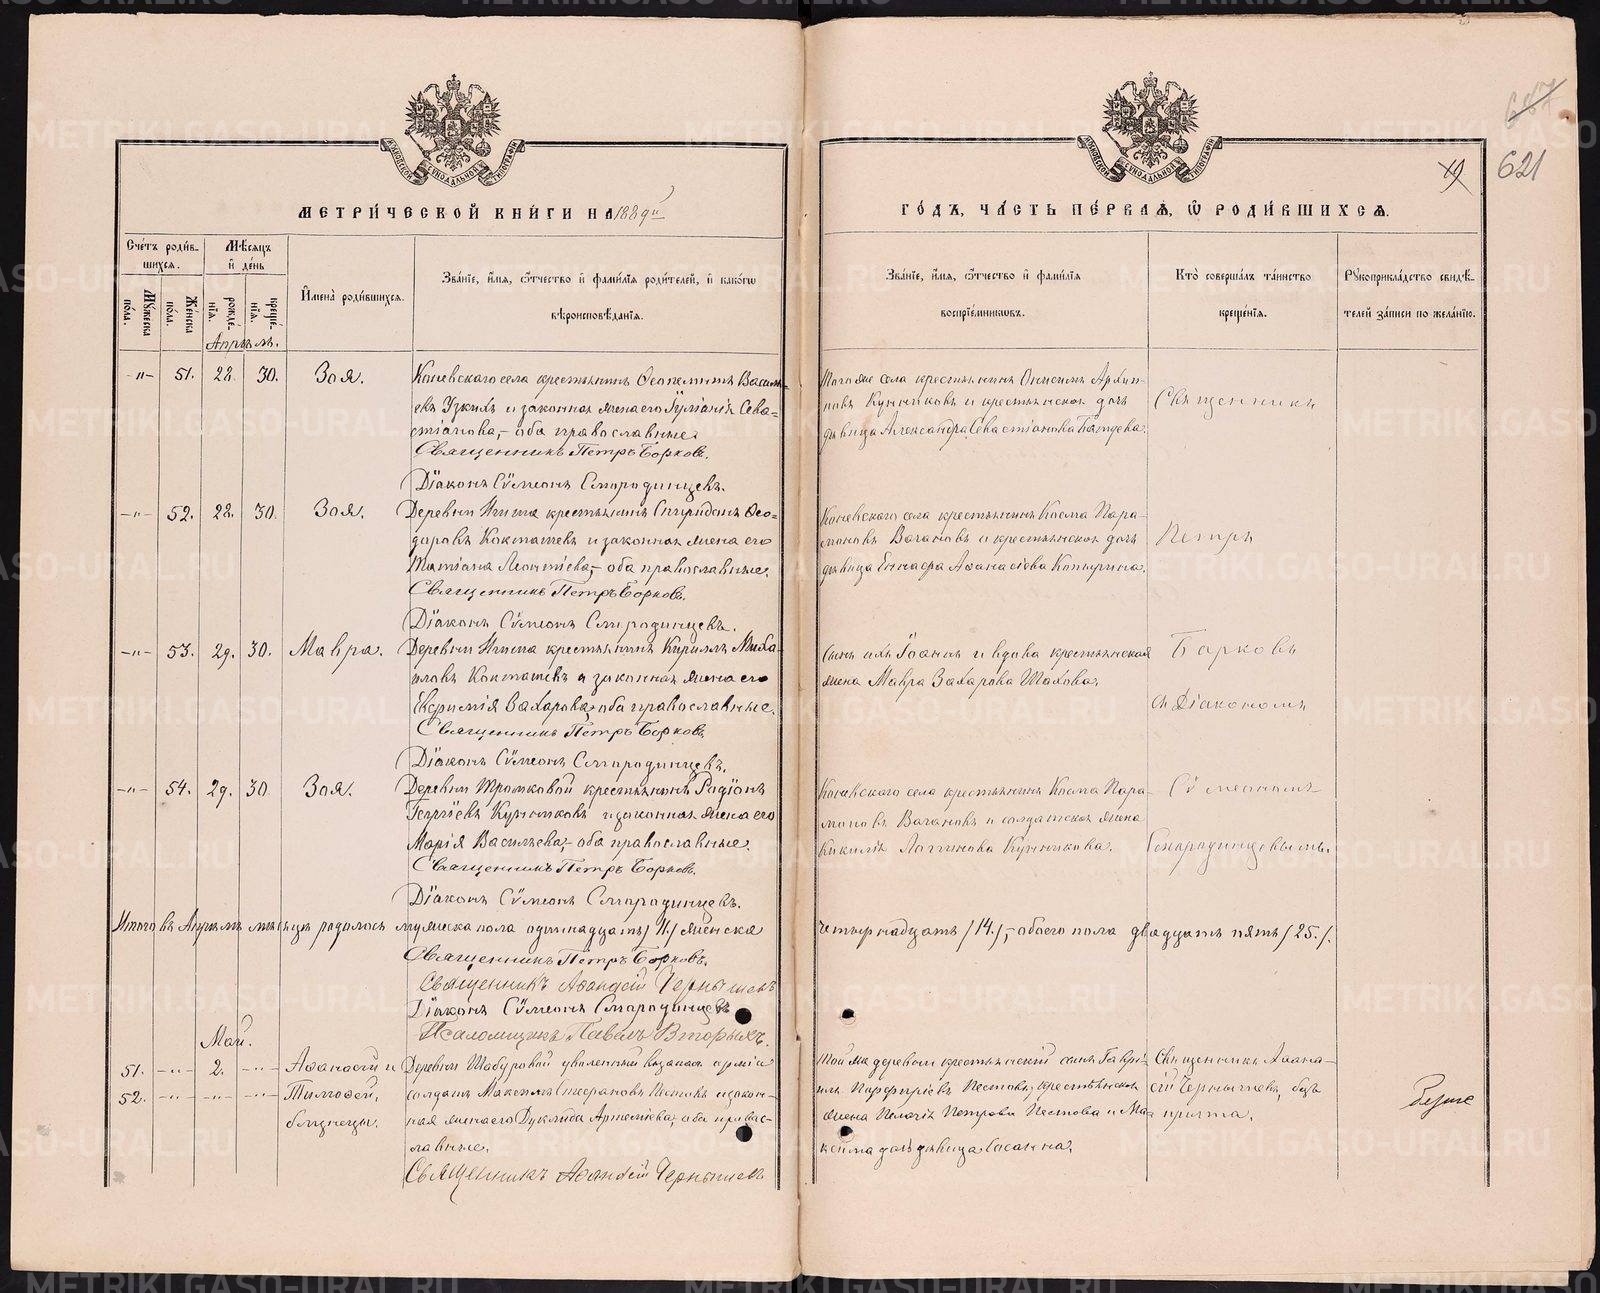 687
621
19
МОСКОВСКОЙ СѴНОДАЛЬНОЙ ТИПОГРАФІИ
МОСКОВСКОЙ СѴНОДАЛЬНОЙ ТИПОГРАФІИ
МЕТРИ́ЧЕСКОЙ КНИ́ГИ НА 1889й
ГО́ДЪ, ЧА́СТЬ ПЕ́РВАЯ, Ѡ РОДИ́ВШИХСЯ.
Сче́тъ роди́в-
шихся.
Мѣ́сяцъ
и҆ де́нь
Мꙋ́жеска
по́ла.
Же́нска
по́ла.
рожде́-
нїѧ.
креще́-
нїѧ.
И҆мена̀ роди́вшихся.
Зва́нїе, и҆́мѧ, ѻ҆́тчество и҆ фами́лїѧ роди́телей, и҆ како́гѡ
вѣроисповѣ́данїѧ.
Зва́нїе, и҆́мѧ, ѻ҆́тчество и҆ фами́лїѧ
воспрїе́мникѡвъ.
Кто̀ соверша́лъ та́инство
креще́нїѧ.
Рꙋкоприкла́дство свидѣ́-
телей за́писи по жела́нїю.
Апрѣль.
-"- 51. 28. 30. Зоя.
Коневскаго села крестьянинъ Ѳеопемптъ Василь-
евъ Узкихъ и законная жена его Іуліанія Сева-
стіанова, - оба православные.
Священникъ Петръ Борковъ.
Діаконъ Сѵмеонъ Смородинцевъ.
Того же села крестьянинъ Онисимъ Архип-
повъ Кунниковъ и крестьянская дочь
дѣвица Александра Севастіанова
-"- 52. 28. 30. Зоя.
Деревни крестьянинъ Спиридонъ Ѳео-
доровъ Кокташевъ и законная жена его
Татіана Леонтіева, - оба православные.
Священникъ Петръ Борковъ.
Діаконъ Сѵмеонъ Смородинцевъ.
Коневскаго села крестьянинъ Косма Пара-
моновъ Вагановъ и крестьянская дочь
дѣвица Аѳанасіева Копырина.
-"- 53. 29. 30. Мавра.
Деревни крестьянинъ Кириллъ Миха-
иловъ Кокташевъ и законная жена его
Евфимія Захарова, оба православные.
Священникъ Петръ Борковъ.
Діаконъ Сѵмеонъ Смородинцевъ.
Сынъ ихъ Іоаннъ и вдова крестьянская
жена Мавра Захарова Шахова.
-"- 54. 29. 30. Зоя.
Деревни крестьянинъ Родіонъ
Георгіевъ Кунниковъ и законная жена его
Марія Васильева, - оба православные.
Священникъ Петръ Борковъ.
Діаконъ Сѵмеонъ Смородинцевъ.
Коневскаго села крестьянинъ Косма Пара-
моновъ Вагановъ и солдатская жена
Кикилія Логинова Кунникова.
Священникъ
Петръ
Борковъ
съ Діакономъ
Сѵмеономъ
Смородинцевымъ.
Итого въ Апрѣлѣ мѣсяцѣ родилось мужеска пола одиннадцать /11./ женска
четырнадцать /14./, - обоего пола двадцать пять /25./.
Священникъ Петръ Борковъ.
Священникъ Аѳанасій Чернышевъ
Діаконъ Сѵмеонъ Смородинцевъ
Псаломщикъ Павелъ Вторыхъ.
Май.
51. -"- 2. -"- Аѳанасій и
52. -"- -"- -"- Тимоѳей,
близнецы.
Деревни Шабуровой уволенный въ запасъ арміи
солдатъ Максимъ Пестовъ и закон-
ная жена его Артеміева, оба право-
славные.
Священникъ Аѳанасій Чернышевъ
Той же деревни крестьянскій сынъ Гаврі-
илъ Порфиріевъ Пестовъ, крестьянская
жена Пелагія Петрова Пестова и Ма-
ксима дочь дѣвица
Священникъ Аѳана-
сій Чернышевъ, безъ
причта.